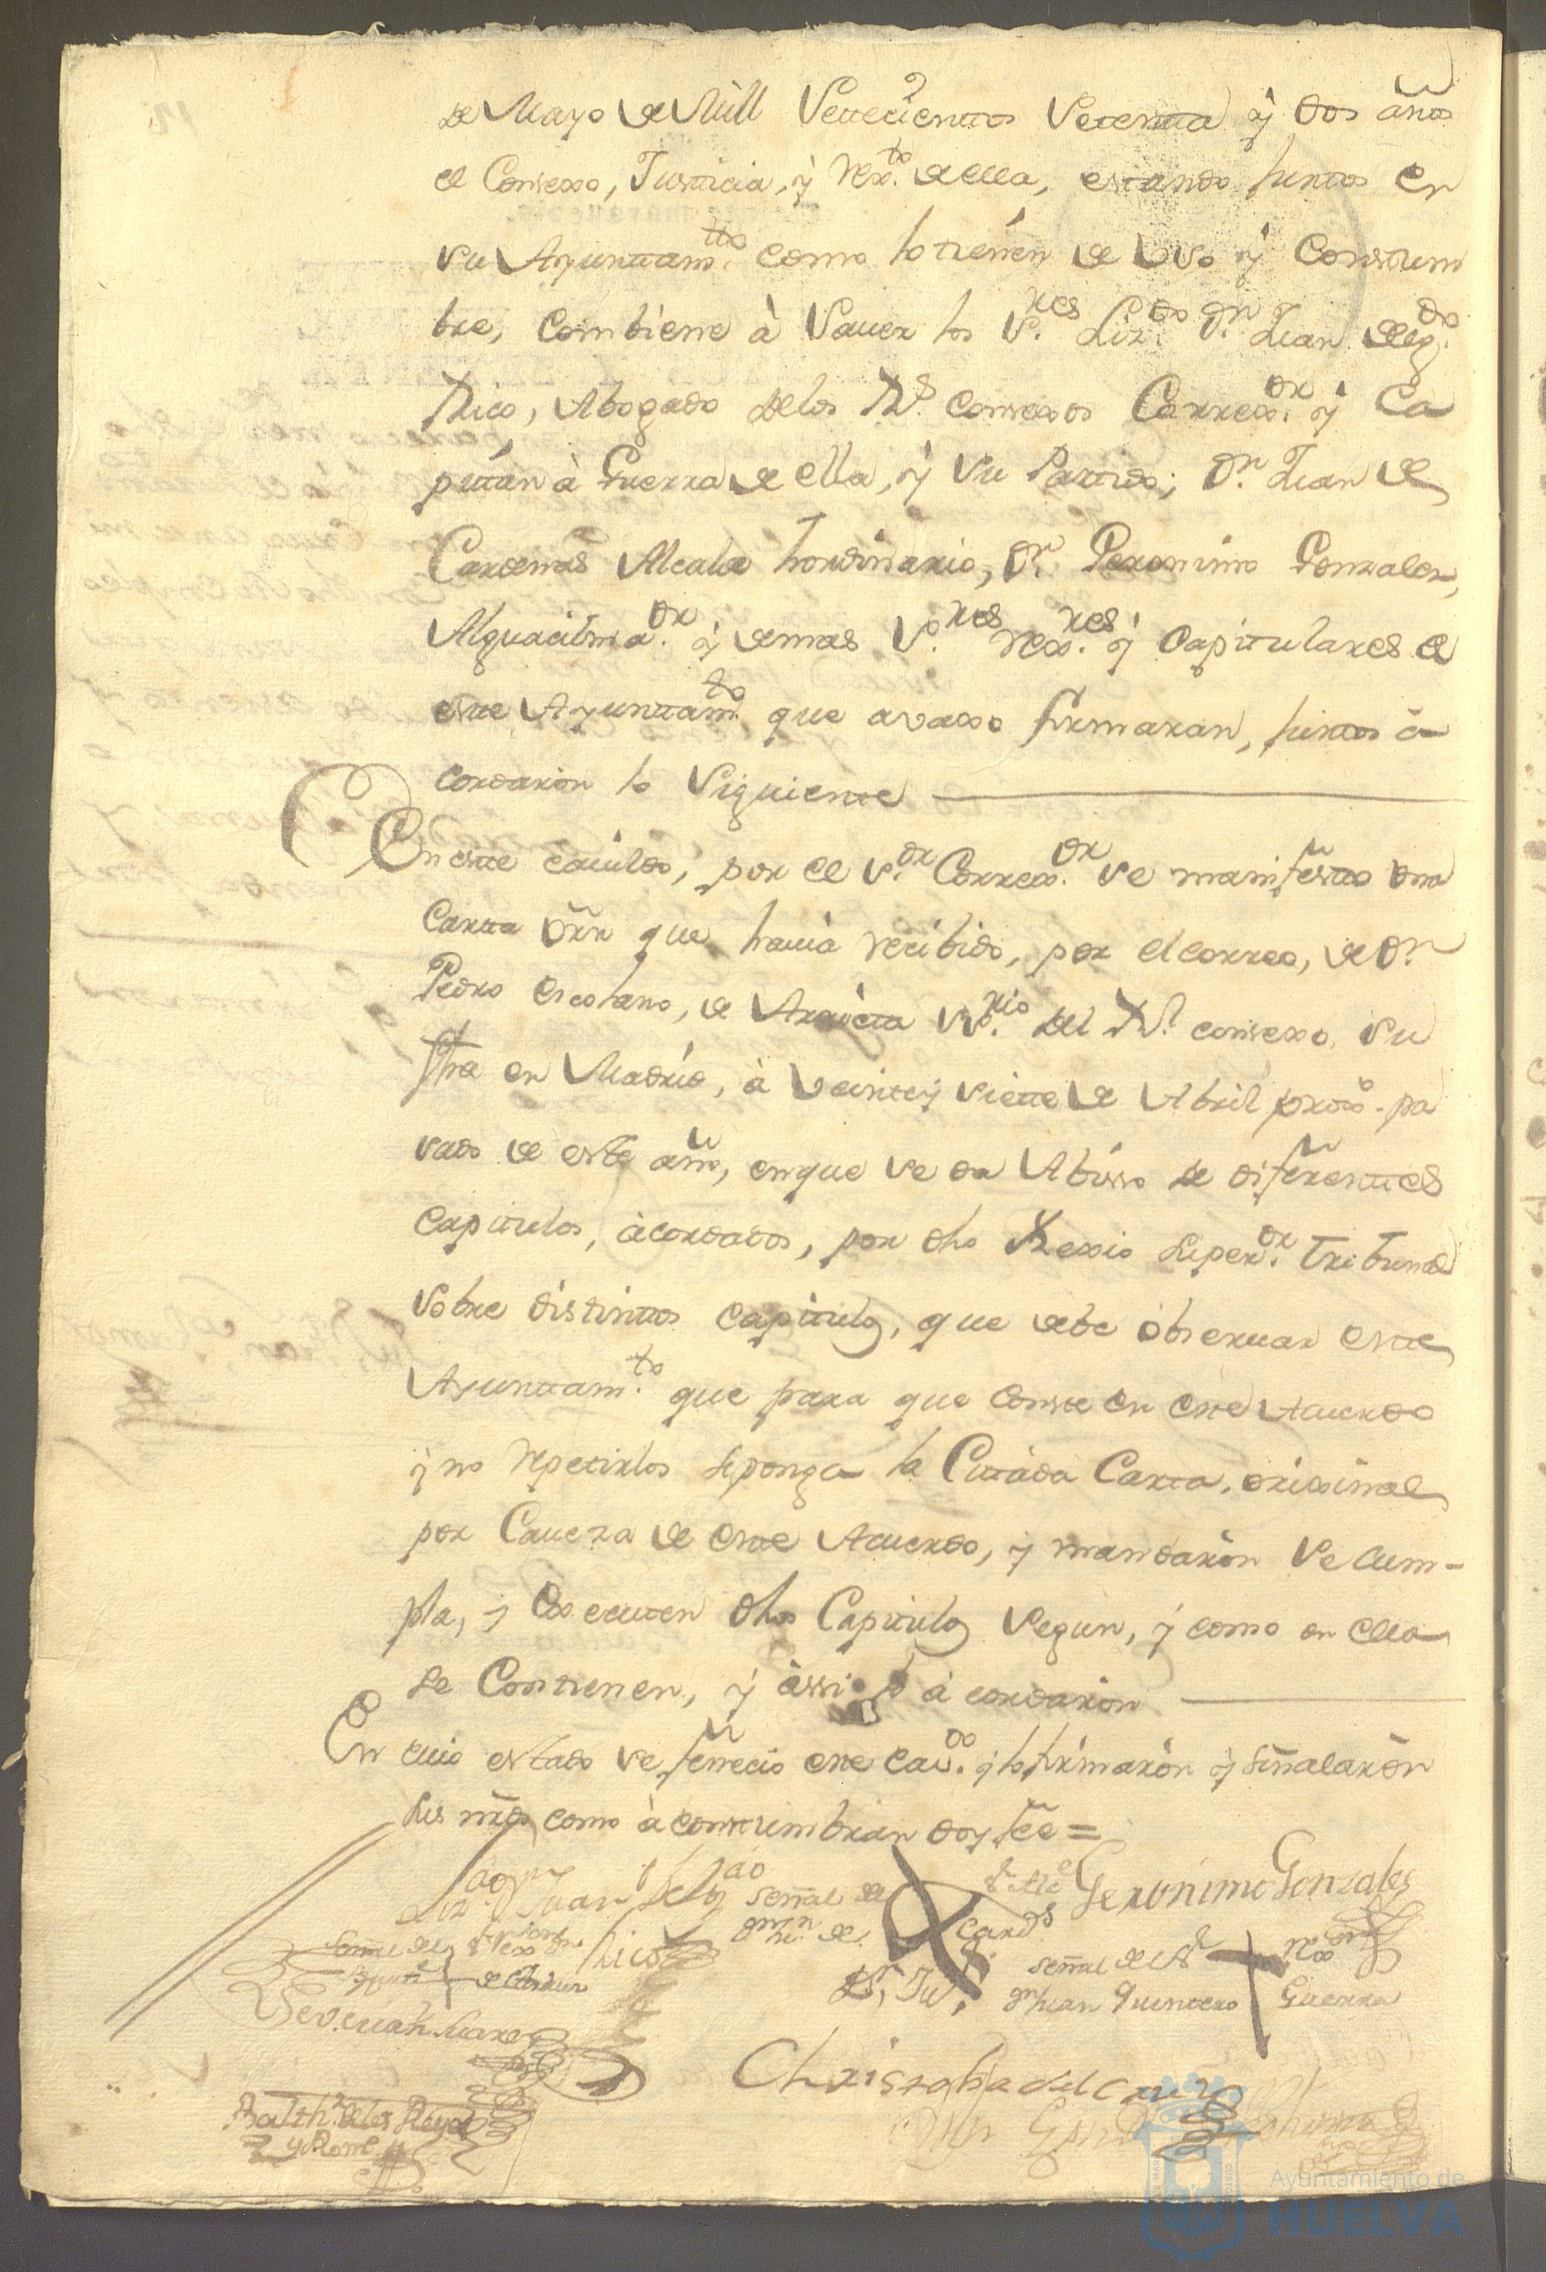 de Mayo de Mill Settecientos Setenta ÿ dos años
el Consexo, Justicia, ÿ Rex.to de ella, estando juntos en
su Ayuntam.tto como lo tienen de Uso ÿ Constum
bre, combiene à Sauer los S.res Liz.do D.n Juan Delg.do
Rico, Abogado delos R.s consexos Correx.or ÿ Ca
pitán à Guerra de ella, ÿ su Partido; D.n Juan de
Cardenas Alcalde hordinario, D.n Geronimo Gonzales,
Alguacilma.or ÿ demas S.res Rex.res ÿ Capitulares de
este Ayuntam.to que avaxo firmaran, juntos à
cordaron lo Siguiente
En este cauildo, por el S.or Correx.or se manifesto una
Carta òrn que hauia recibido, por el correo, de D.n
Pedro Escolano, de Arrieta SSo.rio del R.l consexo su
fha en Madrid, à veinte ÿ siette de Abril proxo. pa
sado de este año, enque se da Abisso de diferenttes
capitulos, àcordados, por dho Rexio Super.or Tribunal
Sobre distintos capitulos, que debe observar este
Ayuntam.to que para que conste en este Acuerdo
ÿ no repetirlos seponga la Citada Carta, orixinal
por Caueza de este Acuerdo, ÿ mandaron se cum-
pla, ÿ Executen dhos Capitulos segun, ÿ como en ella
se Contienen, ÿ àssi lo à cordaron
En cuio estado se feneciò este Cau.do ÿ lo firmaròn ÿ señalaròn
sus mrds como àconstumbran doy fee =
Liz.do D.n Juan Delg.do
Rico
señal de
D.n Ju.n de
Card.s
Geronimo Gonzales
señal de el S.r
D.n Juan Quintero
Rex.or
Guerra
Christobal del
Balth.r de los Reyes
y Rom.o
Ayuntamiento de
HUELVA